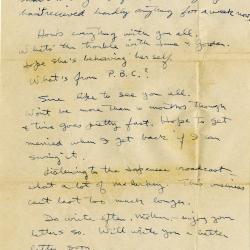 hardly anything for a week now
How's everything with you all.
What's the trouble with June & Gordon.
Hope she's behaving herself.
What's from P.B.C.?
Sure like to see you all.
Won't be more than 4 months though
& time goes pretty fast. Hope to get
married when I get back if I can
swing it.
Listening to the Japanese broadcast
what a lot of malarkey. This mess
cant last too much longer.
Do write often, Mother, enjoy your
letters so. Will write you a better
letter soon